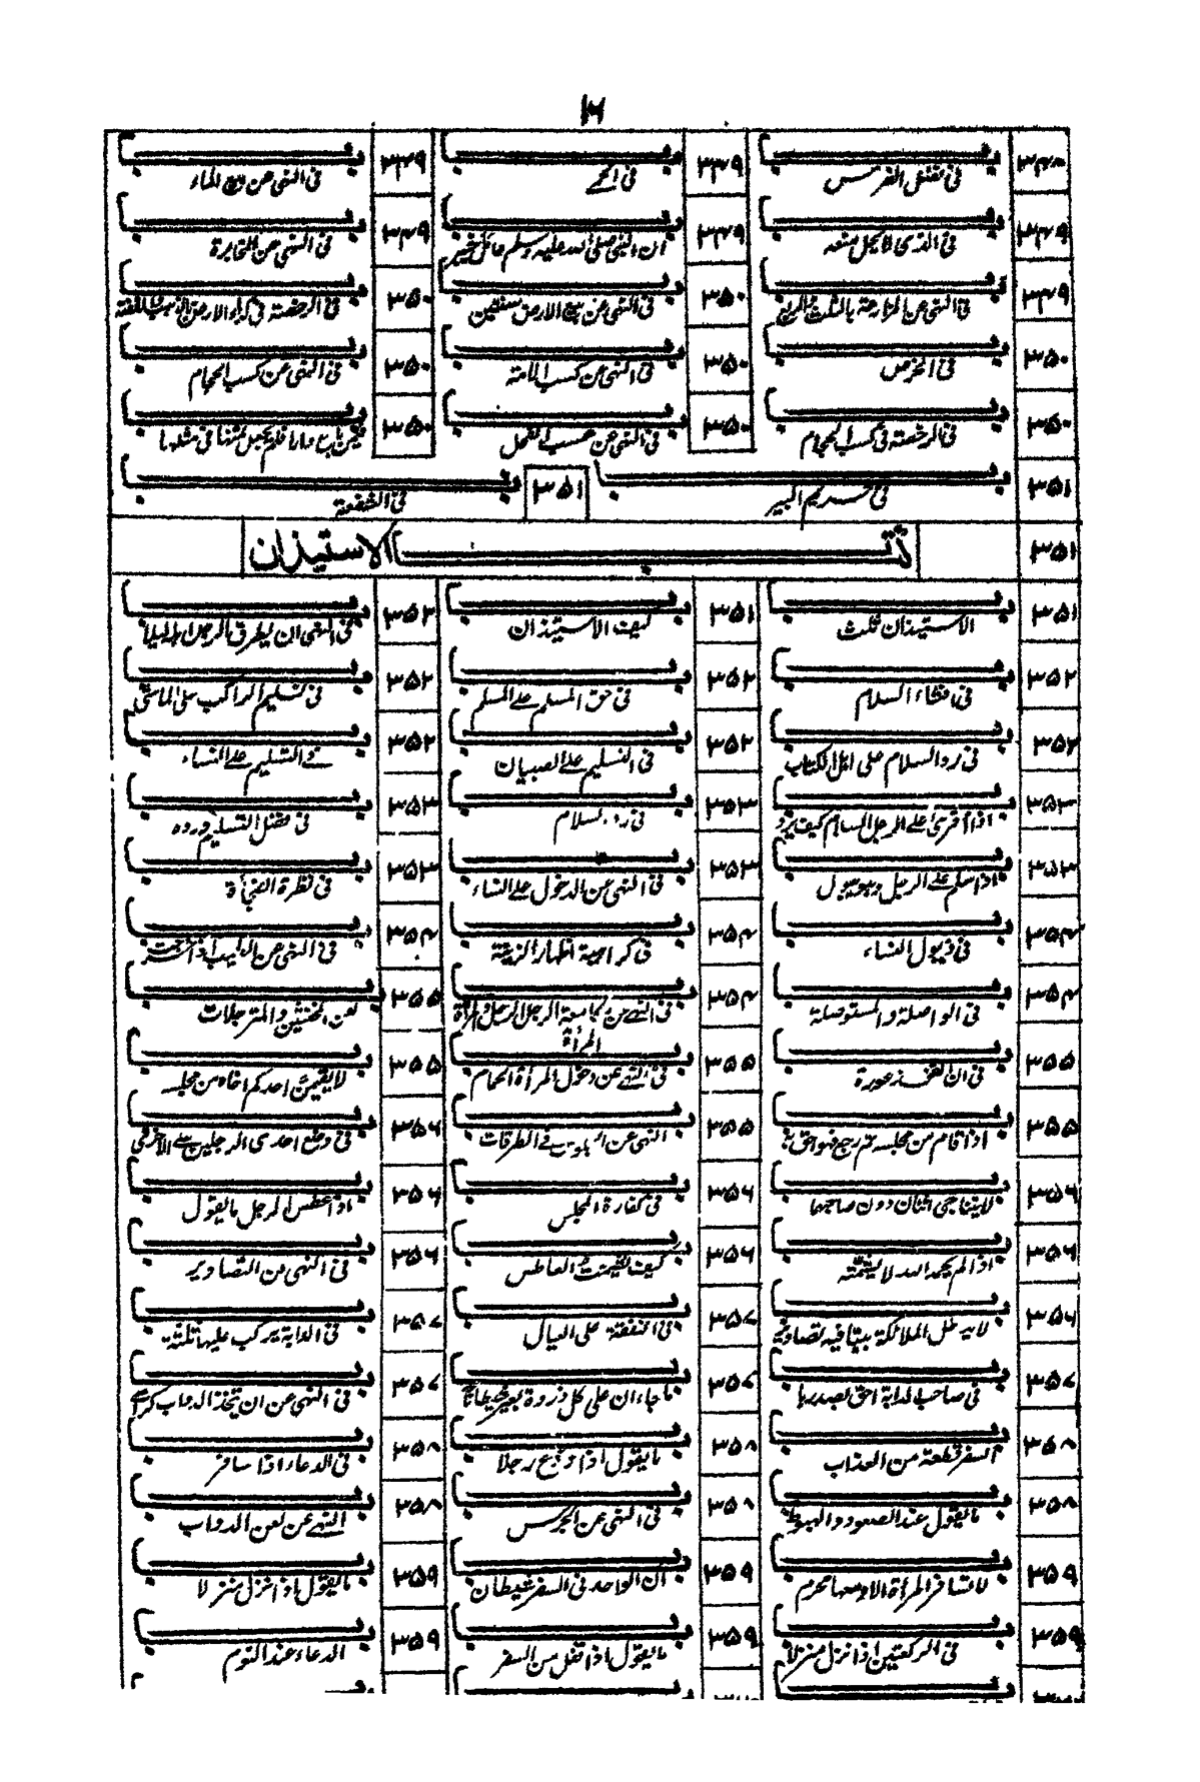 ۳۴۸ باب فی تفضل الغرس ۳۴۹ باب فی الحمی ۳۴۹ باب فی النهی عن بیع الماء
۳۴۹ باب فی الذی لا یحل منعه ۳۴۹ باب ان النبی صلی الله علیه وسلم عامل خیبر ۳۴۹ باب فی النهی عن المخابرة
۳۴۹ باب فی النهی عن المزارعة بالثلث والربع ۳۵۰ باب فی النهی عن بیع الارض سنتین ۳۵۰ باب فی الرخصة فی کراء الارض بالذهب والفضة
۳۵۰ باب فی الخرص ۳۵۰ باب فی النهی عن کسب الامة ۳۵۰ باب فی النهی عن کسب الحجام
۳۵۰ باب فی الرخصة فی کسب الحجام ۳۵۰ باب فی النهی عن عسب الفحل ۳۵۰ باب فیمن باع دارا فلم یجعل ثمنها فی مثلها
۳۵۱ باب فی حریم البیر ۳۵۱ باب فی الشفعة
۳۵۱ کتاب الاستیذان
۳۵۱ باب الاستیذان ثلث ۳۵۱ باب کیف الاستیذان ۳۵۲ باب فی النهی ان یطرق الرجل اهله لیلا
۳۵۲ باب فی افشاء السلام ۳۵۲ باب فی حق المسلم علی المسلم ۳۵۲ باب فی تسلیم الراکب علی الماشی
۳۵۲ باب فی رد السلام علی اهل الکتاب ۳۵۲ باب فی التسلیم علی الصبیان ۳۵۲ باب فی التسلیم علی النساء
۳۵۳ باب اذا اقرئ علی الرجل السلام کیف یرد ۳۵۳ باب فی رد السلام ۳۵۳ باب فی فضل التسلیم ورده
۳۵۳ باب اذا سلم علی الرجل وهو یبول ۳۵۳ باب فی النهی عن الدخول علی النساء ۳۵۳ باب فی نظرة الفجأة
۳۵۴ باب فی ذیول النساء ۳۵۴ باب فی کراهیة اظهار الزینة ۳۵۴ باب فی النهی عن الطیب اذا خرجت
۳۵۴ باب فی الواصلة والمستوصلة ۳۵۴ باب فی النهی عن مکامعة الرجل الرجل والمرأة المرأة ۳۵۵ باب لعن المخنثین والمترجلات
۳۵۵ باب فی ان الفخذ عورة ۳۵۵ باب فی النهی عن دخول المرأة الحمام ۳۵۵ باب لا یقیمن احدکم اخاه من مجلسه
۳۵۵ باب اذا قام من مجلسه ثم رجع فهو احق به ۳۵۵ باب النهی عن الجلوس فی الطرقات ۳۵۶ باب فی وضع احدی الرجلین علی الاخری
۳۵۶ باب لا یتناجی اثنان دون صاحبهما ۳۵۶ باب فی کفارة المجلس ۳۵۶ باب اذا عطس الرجل ما یقول
۳۵۶ باب اذا لم یحمد الله لا یشمته ۳۵۶ باب کیف تشمیت العاطس ۳۵۶ باب فی النهی عن التصاویر
۳۵۶ باب لا تدخل الملائکة بیتا فیه تصاویر ۳۵۷ باب فی النفقة علی العیال ۳۵۷ باب فی الدابة یرکب علیها ثلثة
۳۵۷ باب فی صاحب الدابة احق بصدرها ۳۵۷ باب ما جاء ان علی کل ذروة بعیر شیطانا ۳۵۷ باب فی النهی عن ان یتخذ الدواب کراسی
۳۵۸ باب السفر قطعة من العذاب ۳۵۸ باب ما یقول اذا ودع رجلا ۳۵۸ باب فی الدعاء اذا سافر
۳۵۸ باب ما یقول عند الصعود والهبوط ۳۵۸ باب فی النهی عن الجرس ۳۵۸ باب النهی عن لعن الدواب
۳۵۹ باب لا تسافر المرأة الا ومعها محرم ۳۵۹ باب ان الواحد فی السفر شیطان ۳۵۹ باب ما یقول اذا نزل منزلا
۳۵۹ باب فی الرکعتین اذا نزل منزلا ۳۵۹ باب ما یقول اذا قفل من السفر ۳۵۹ باب الدعاء عند النوم